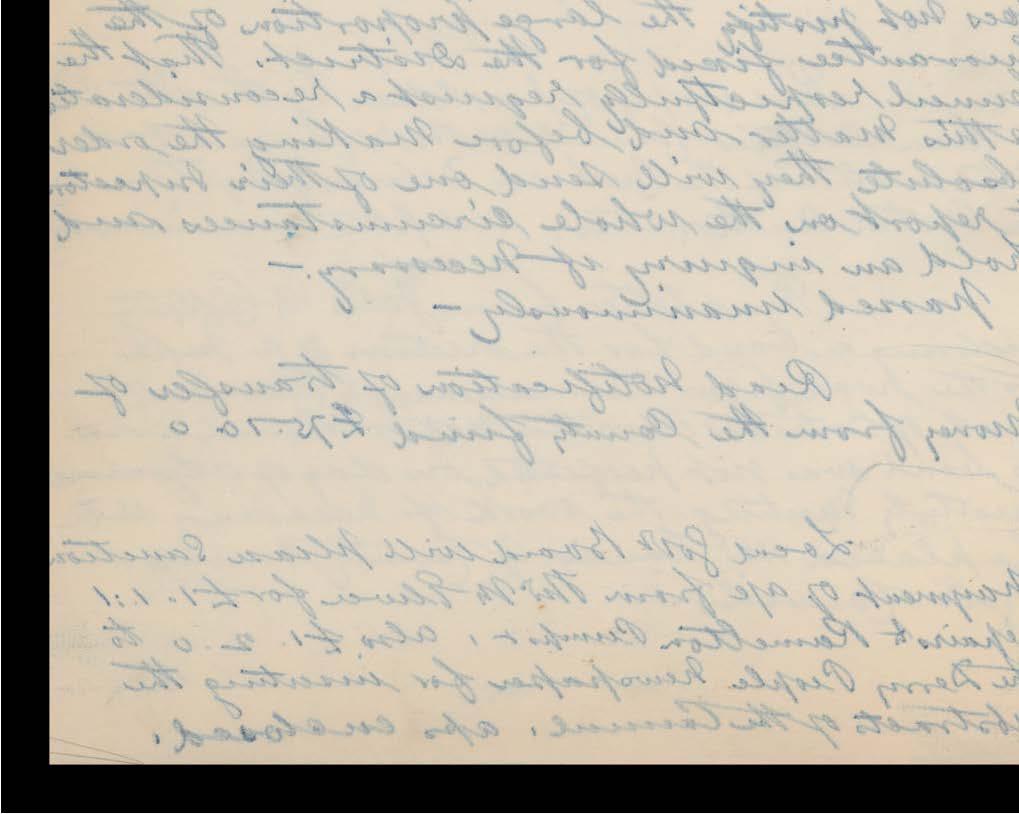 oes not justify the large proportion of the
guarantee fixed for the District. That the
ouncil respectfully request a reconsideratio
this matter and before making the order
bsolute they will send one of their Inspectors
report on the whole circumstances and
hold an inquiry if necessary. —
Passed unanimously —
Read Notification of transfer of
Money from the County fund £75.10.0
Local Govt Board will please Sanction
Payment of a/c from Mr for £1.1.1:
epairs Ramelton Pumps, also £1.2.0 to
he Derry People Newspaper for inserting the
bstracts of the Council. a/cs enclosed.